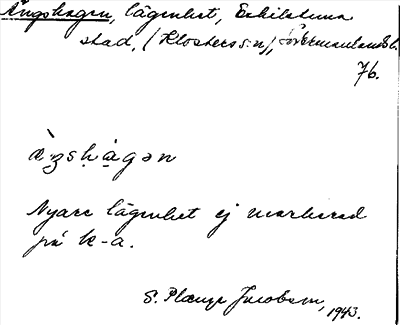 Ängshagen, lägenhet, Eskilstuna
stad, (Klosters sn), Södermanlands l.
76.
ä̀ŋshàgən
Nyare lägenhet ej markerad
på k-a.
S. Plænge Jacobson, 1943.